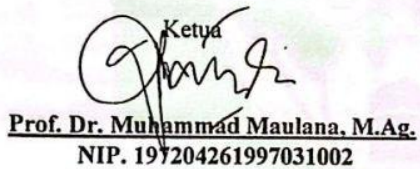 Ketua
Prof. Dr. Muhammad Maulana, M.Ag.
NIP. 197204261997031002